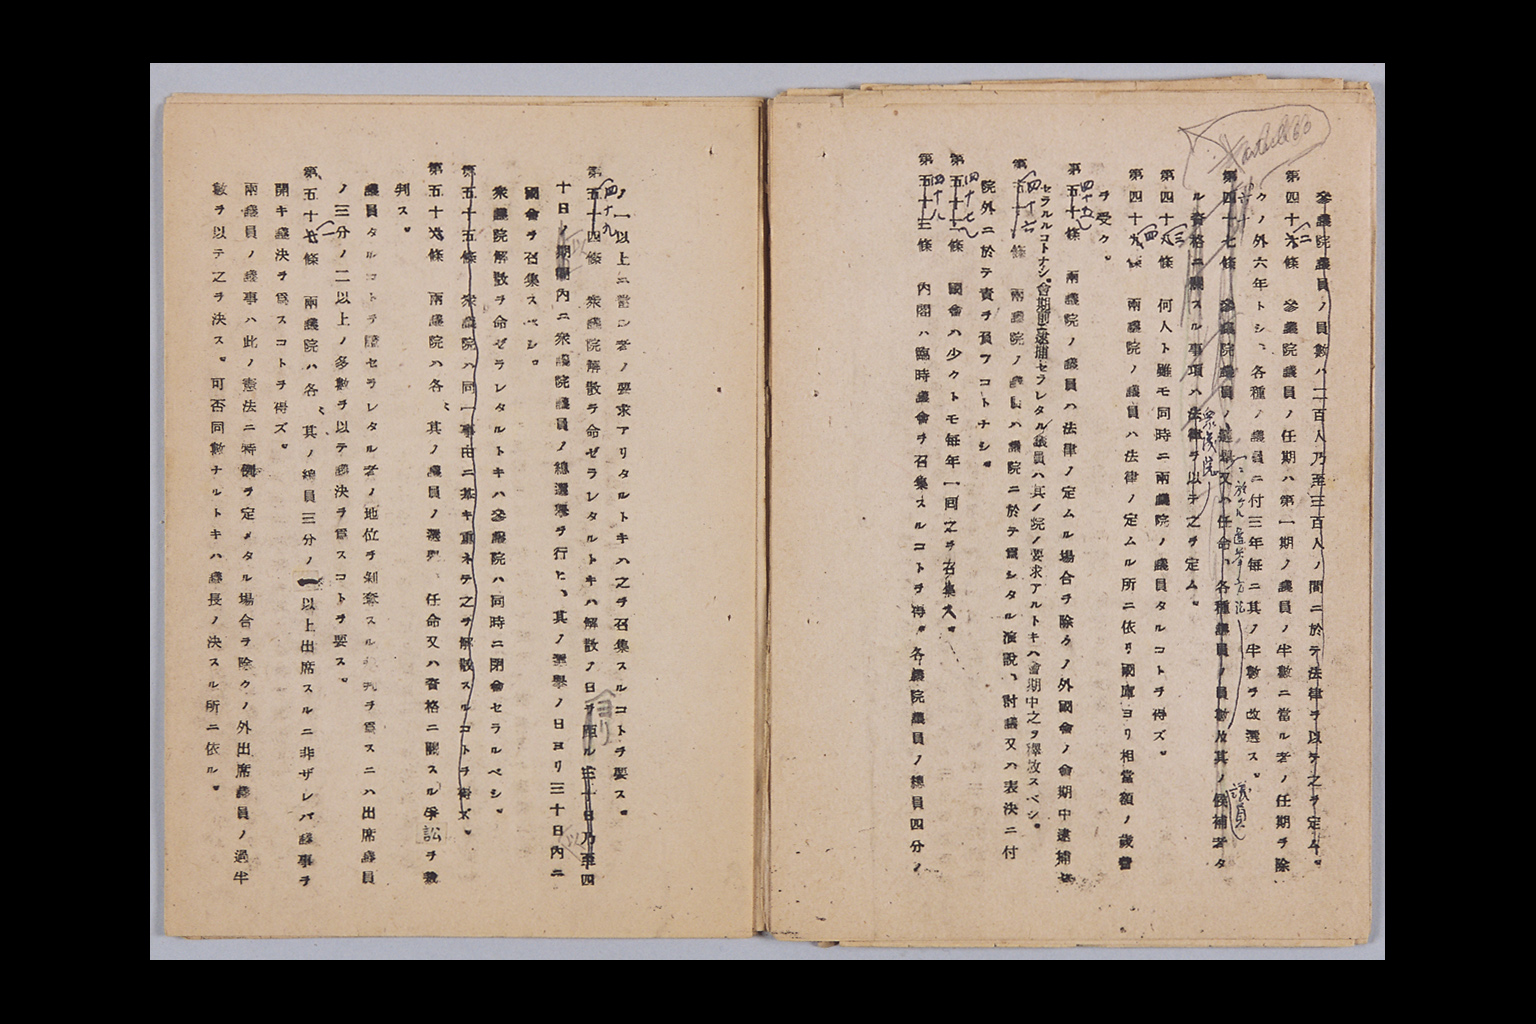 參議院議員ノ員數ハ二百人乃至三百人ノ間ニ於テ法律ヲ以テ之ヲ定ム。
第四十六條　參議院議員ノ任期ハ第一期ノ議員ノ半數ニ當ル者ノ任期ヲ除
クノ外六年トシ、各種ノ議員ニ付三年每ニ其ノ半數ヲ改選ス。
ニ於ケル選擧方法
第四十七條　參議院議員ノ選擧又ハ任命、各種議員ノ員數及其ノ候補者タ
議員
衆議院
ル資格ニ關スル事項ハ法律ヲ以テ之ヲ定ム。
第四十八條　何人ト雖モ同時ニ兩議院ノ議員タルコトヲ得ズ。
第四十九條　兩議院ノ議員ハ法律ノ定ムル所ニ依リ國庫ヨリ相當額ノ歲費
ヲ受ク。
四十五
第五十條　兩議院ノ議員ハ法律ノ定ムル場合ヲ除クノ外國會ノ會期中逮捕セ
セラルルコトナシ。會期前ニ逮捕セラレタル議員ハ其ノ院ノ要求アルトキハ會期中之ヲ釋放スベシ。
四十六
第五十一條　兩議院ノ議員ハ議院ニ於テ爲シタル演說、討議又ハ表決ニ付
院外ニ於テ責ヲ負フコトナシ。
四十七
第五十二條　國會ハ少クトモ每年一囘之ヲ召集ス。
四十八
第五十三條　內閣ハ臨時議會ヲ召集スルコトヲ得。各議院議員ノ總員四分ノ
ノ一以上ニ當ル者ノ要求アリタルトキハ之ヲ召集スルコトヲ要ス。
四十九
第五十四條　衆議院解散ヲ命ゼラレタルトキハ解散ノ日ヲ距ル三十日乃至四
ヨリ
十日ノ期間內ニ衆議院議員ノ總選擧ヲ行ヒ、其ノ選擧ノ日ヨリ三十日內ニ
國會ヲ召集スベシ。
衆議院解散ヲ命ゼラレタルトキハ參議院ハ同時ニ閉會セラルベシ。
第五十五條　衆議院ハ同一事由ニ基キ重ネテ之ヲ解散スルコトヲ得ズ。
第五十六條　兩議院ハ各〻其ノ議員ノ選擧、任命又ハ資格ニ關スル爭訟ヲ裁
判ス。
議員タルコトヲ證セラレタル者ノ地位ヲ剝奪スル裁判ヲ爲スニハ出席議員
ノ三分ノ二以上ノ多數ヲ以テ議決ヲ爲スコトヲ要ス。
第五十七條　兩議院ハ各〻其ノ總員三分ノ一以上出席スルニ非ザレバ議事ヲ
開キ議決ヲ爲スコトヲ得ズ。
兩議員ノ議事ハ此ノ憲法ニ特例ヲ定メタル場合ヲ除クノ外出席議員ノ過半
數ヲ以テ之ヲ決ス。可否同數ナルトキハ議長ノ決スル所ニ依ル。